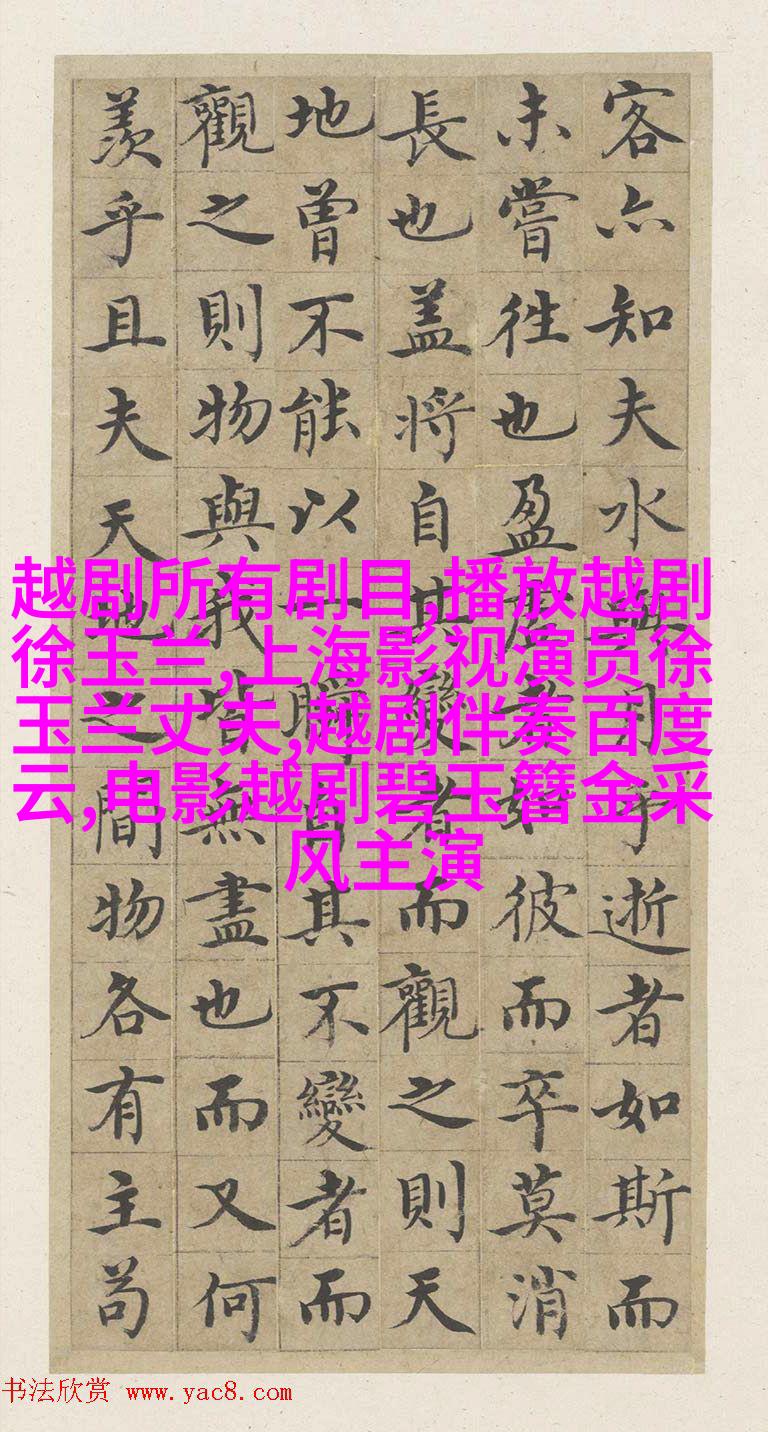 客亦知夫水與月乎逝者如斯而
未嘗往也盈虛者如彼而卒莫消
長也盖將自其變者而觀之則天
地曾不能以一瞬自其不變者而
觀之則物與我皆無盡也而又何
羨乎且夫天地之間物各有主苟
越剧所有剧目,播放越剧
徐玉兰,上海影视演员徐
玉兰丈夫,越剧伴奏百度
云,电影越剧碧玉簪金采
风主演
书法欣赏 www.yac8.com